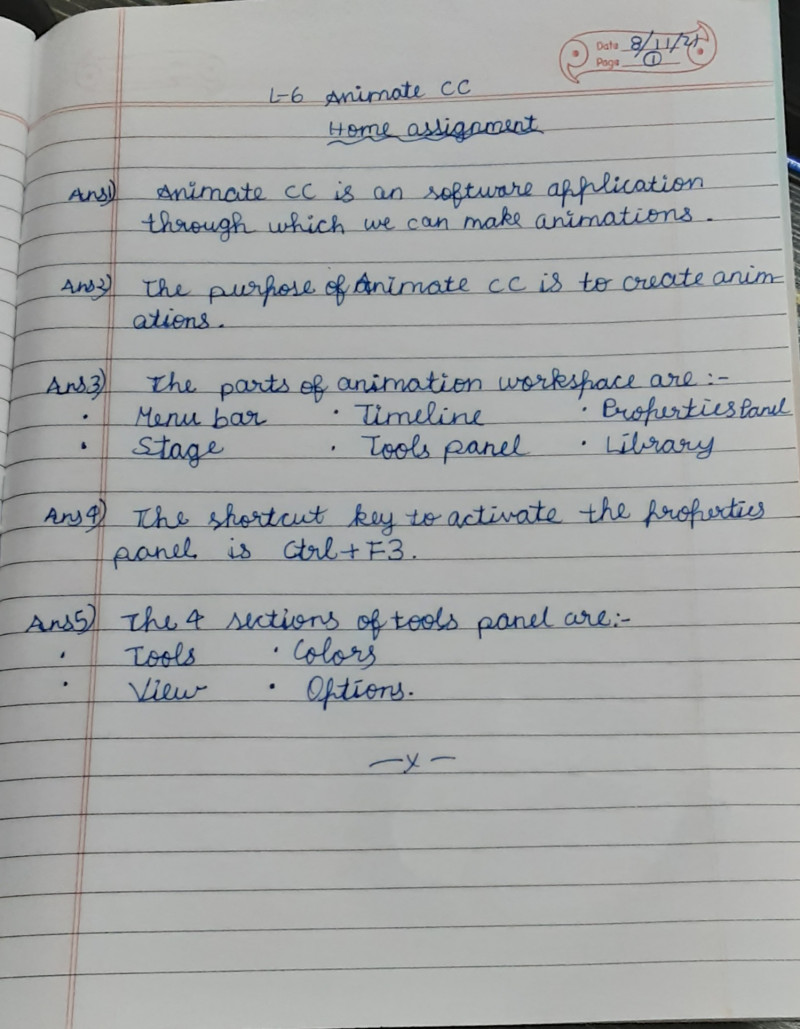 Date 8/11/21
Page 1
L-6 Animate CC
Home assignment
Ans1) Animate CC is an software application
through which we can make animations.
Ans2) The purpose of Animate CC is to create anim-
ations.
Ans3) The parts of animation workspace are:-
· Menu bar · Timeline · Properties Panel
· Stage · Tools panel · Library
Ans4) The shortcut key to activate the properties
panel is Ctrl+F3.
Ans5) The 4 sections of tools panel are:-
· Tools · Colors
· View · Options.
—x—